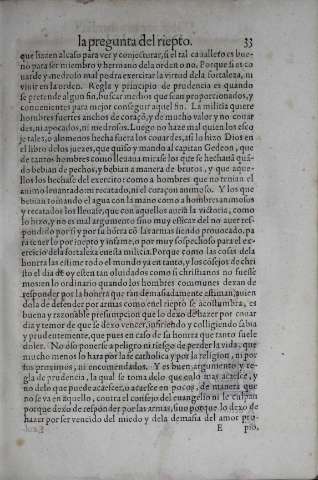 la pregunta del riepto. 33
que hazen al caso para ver y conjecturar, si el tal cauallero es bue-
no para ser miembro y hermano dela orden o no. Porque si es co
uarde y medroso mal podra exercitar la virtud dela fortaleza, ni
viuir en la orden. Regla y principio de prudencia es quando
se pretende algun fin, buscar medios que sean proporcionados, y
conuenientes para mejor conseguir aquel fin. La milicia quiere
hombres fuertes anchos de coraçõ, y de mucho valor y no couar
des, ni apocados, ni medrosos. Luego no haze mal quien los esco
je tales, o alomenos hecha fuera los couardes, assi lo hizo Dios en
el libro delos juezes, que quiso y mando al capitan Gedeon, que
de tantos hombres como lleuaua mirase los que se hechauã quã-
do bebian de pechos, y bebian a manera de brutos, y que aque-
llos los hechase del exercito: como a hombres que no tenian el
animo leuantado mi recatado, ni el coraçon animoso. Y los que
bebian tomando el agua con la mano como a hombres animosos
y recatados los lleuase, que con aquellos auria la victoria, como
lo hizo, y no es mal argumento sino muy efficaz del no auer res-
pondido por si y por su hõrra cõ las armas siendo prouocado, pa
ra tenerlo por inepto y infame, o por muy sospechoso para el ex-
ercicio dela fortaleza en esta milicia. Porque como las cosas dela
honrra las estime todo el mundo ya en tanto, y los cõsejos de chri
sto el dia de oy esten tan oluidados como si christianos no fuesse
mos: en lo ordinario quando los hombres comunes dexan de
responder por la honrra que tan demasiadamente estiman, quien
dola de defender por armas como en el riepto se acostumbra, es
buena y razonable presumpcion que lo dexo de hazer por couar
dia y temor de que se dexo vencer, infiriendo y colligiendo sabia
y prudentemente, que pues en caso de su honrra que tanto suele
doler. No osò ponerse a peligro ni riesgo de perder la vida, que
mucho menos lo hara por la fe catholica y por la religion, ni por
sus proximos, ni encomendados. Y es buen argumento y re-
gla de prudencia, la qual se toma delo que en lo mas acaesce, y
no delo que puede acaescer, o acaesce en pocos, de manera que
no se va en aquello, contra el consejo del euangelio ni le culpan
porque dexo de responder por las armas, sino porque lo dexo de
hazer por ser vencido del miedo y dela demasia del amor pro-
E pio.